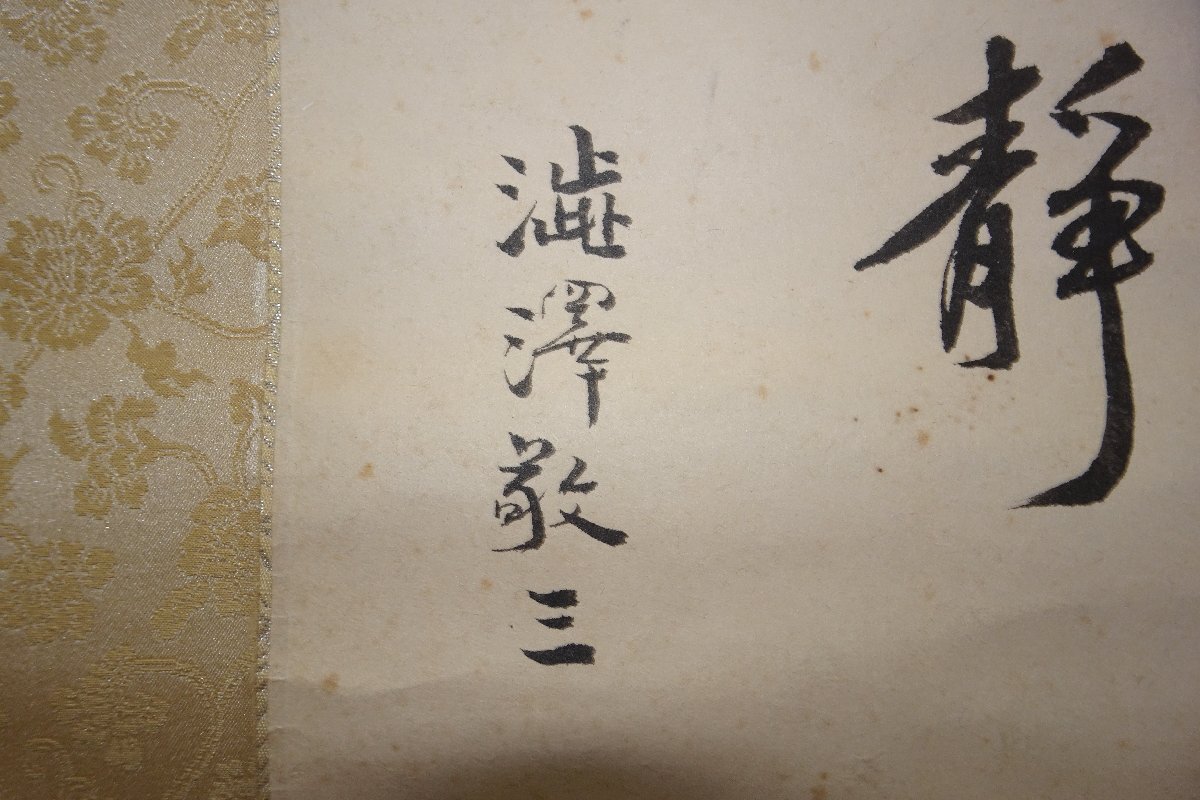 靜
澁澤敬三